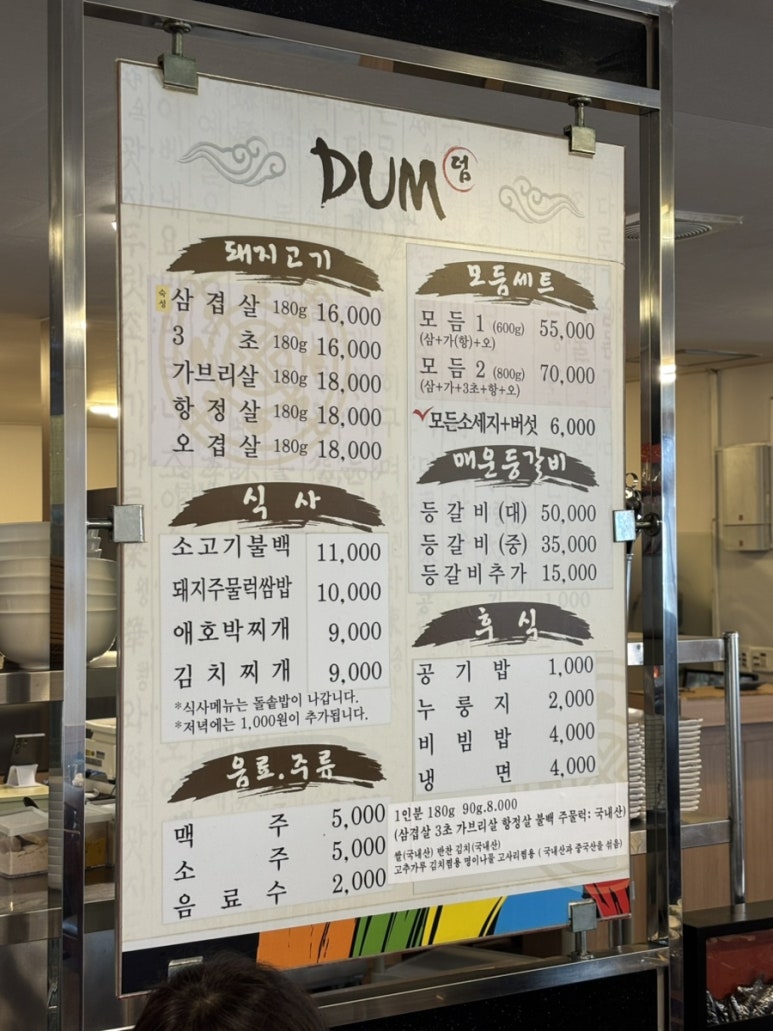 DUM 덤
돼지고기
숙성 삼겹살 180g 16,000
3초 180g 16,000
가브리살 180g 18,000
항정살 180g 18,000
오겹살 180g 18,000
식사
소고기불백 11,000
돼지주물럭쌈밥 10,000
애호박찌개 9,000
김치찌개 9,000
*식사메뉴는 돌솥밥이 나갑니다.
*저녁에는 1,000원이 추가됩니다.
음료.주류
맥주 5,000
소주 5,000
음료수 2,000
모듬세트
모듬1 (600g) 55,000
(삼+가(항)+오)
모듬2 (800g) 70,000
(삼+가+3초+항+오)
모든소세지+버섯 6,000
매운등갈비
등갈비(대) 50,000
등갈비(중) 35,000
등갈비추가 15,000
후식
공기밥 1,000
누룽지 2,000
비빔밥 4,000
냉면 4,000
1인분 180g 90g.8.000
(삼겹살 3초 가브리살 항정살 불백 주물럭: 국내산)
쌀(국내산) 반찬 김치(국내산)
고추가루 김치찜용 명이나물 고사리찜용 ( 국내산과 중국산을 섞음)